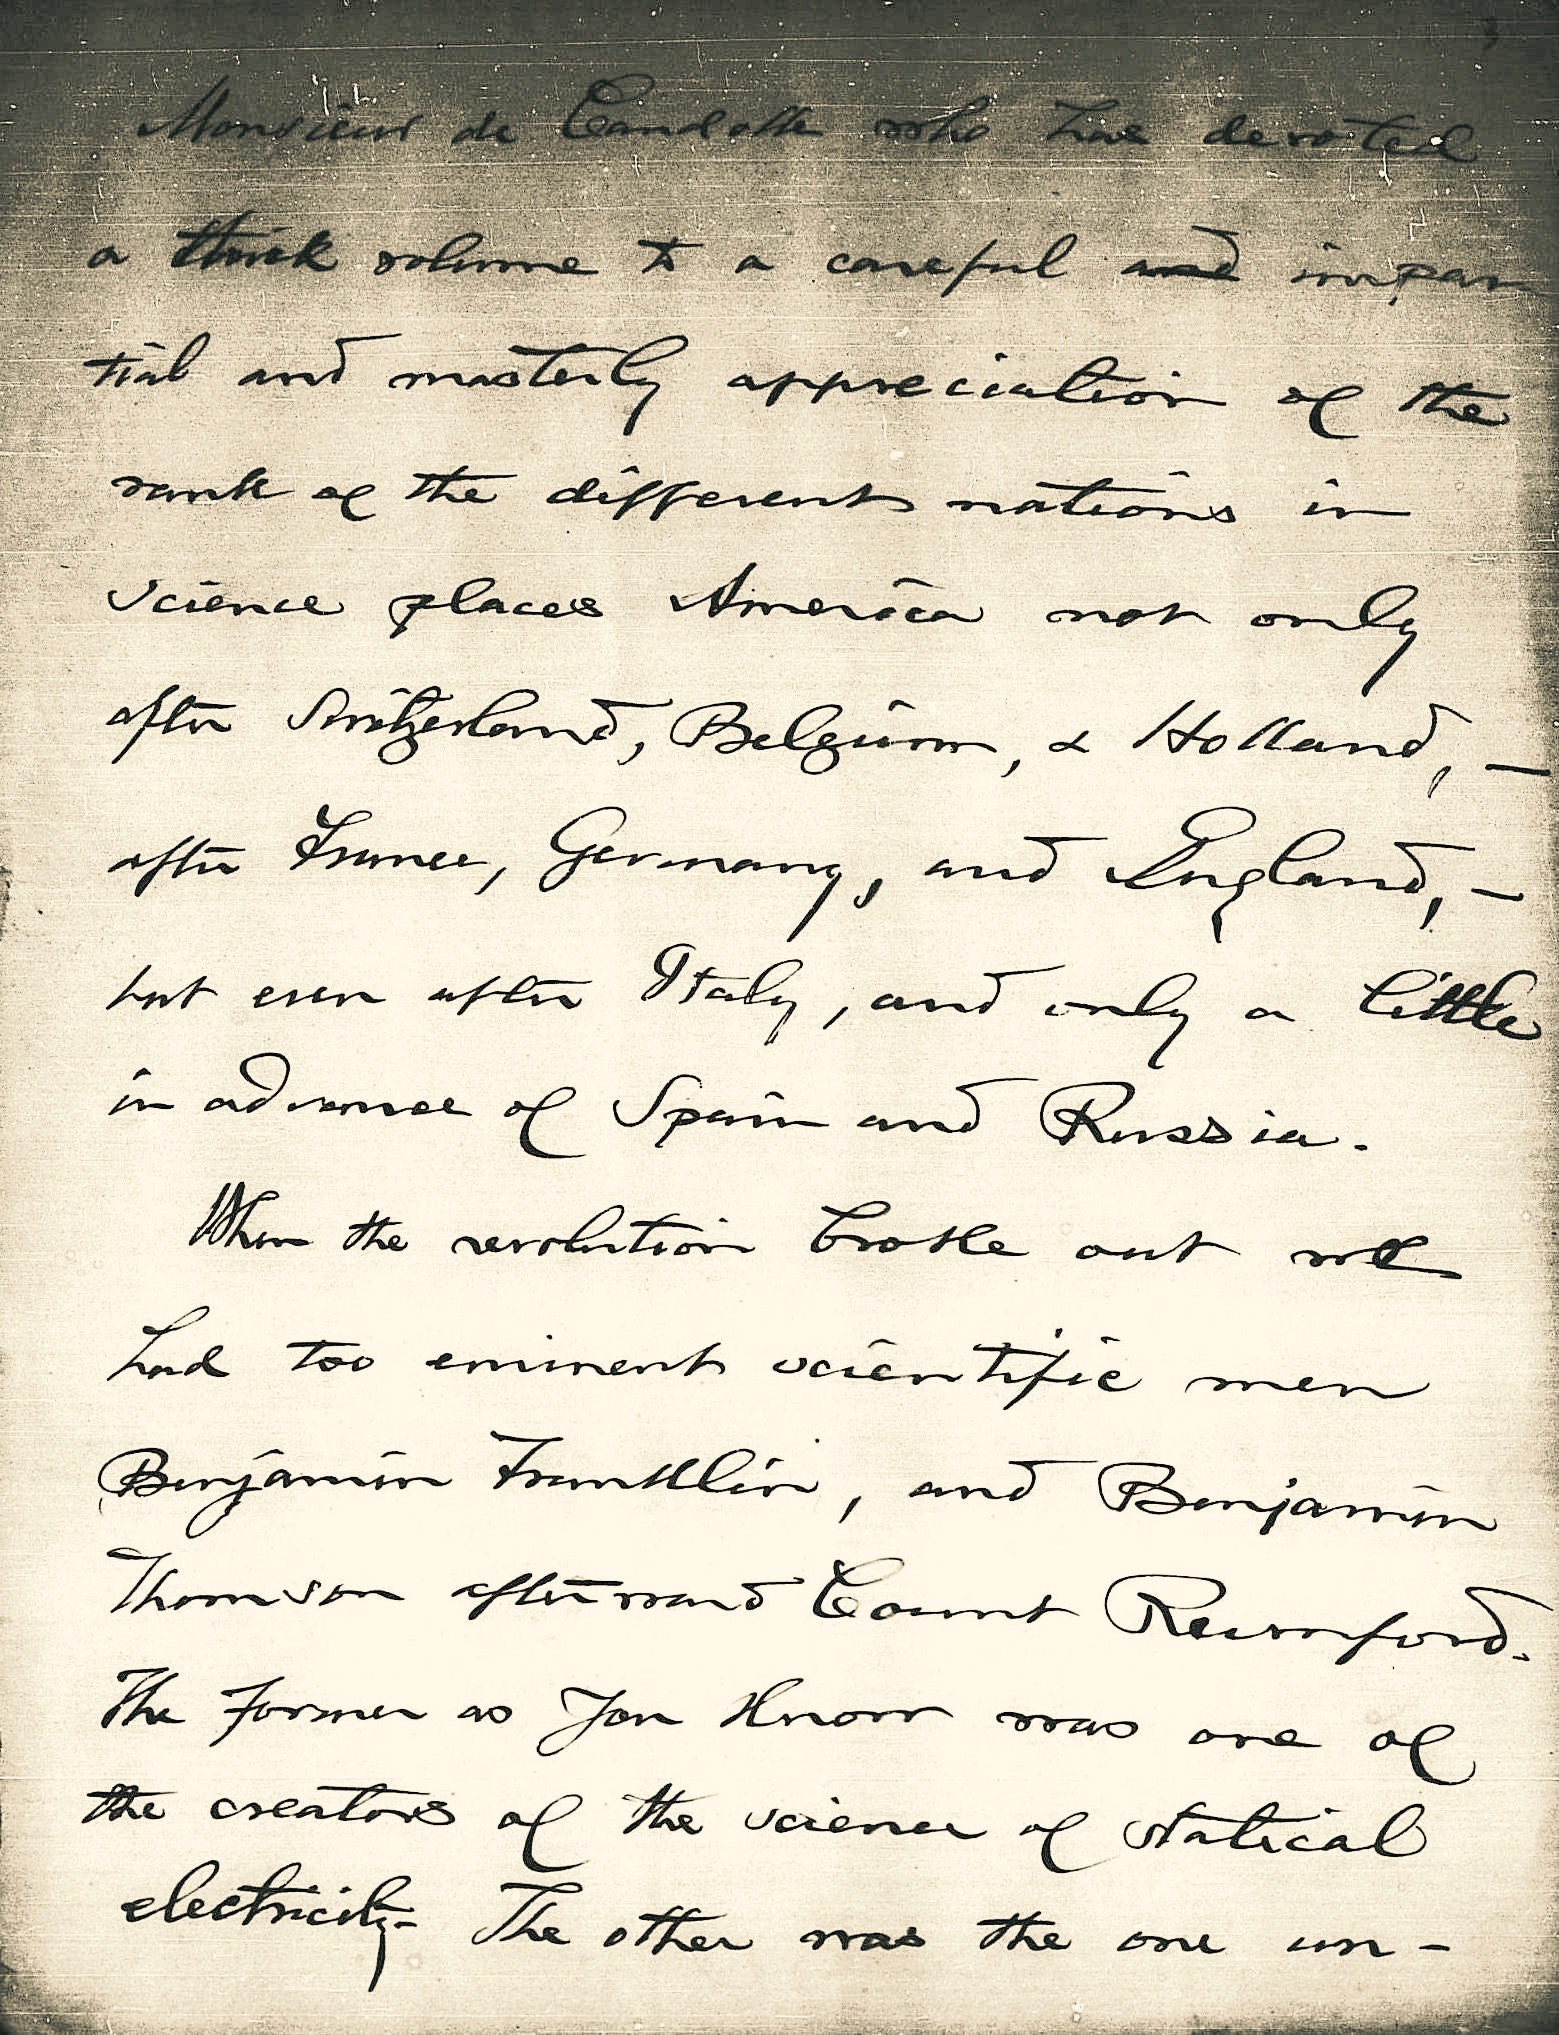 Monsieur de Candolle who has devoted
a thick volume to a careful and impar
tial and masterly appreciation of the
rank of the different nations in
science places America not only
after Switzerland, Belgium, & Holland, —
after France, Germany, and England, —
but even after Italy, and only a little
in advance of Spain and Russia.
When the revolution broke out we
had too eminent scientific men
Benjamin Franklin, and Benjamin
Thomson afterward Count Rumford.
The former as you know was one of
the creators of the science of statical
electricity— The other was the one un-